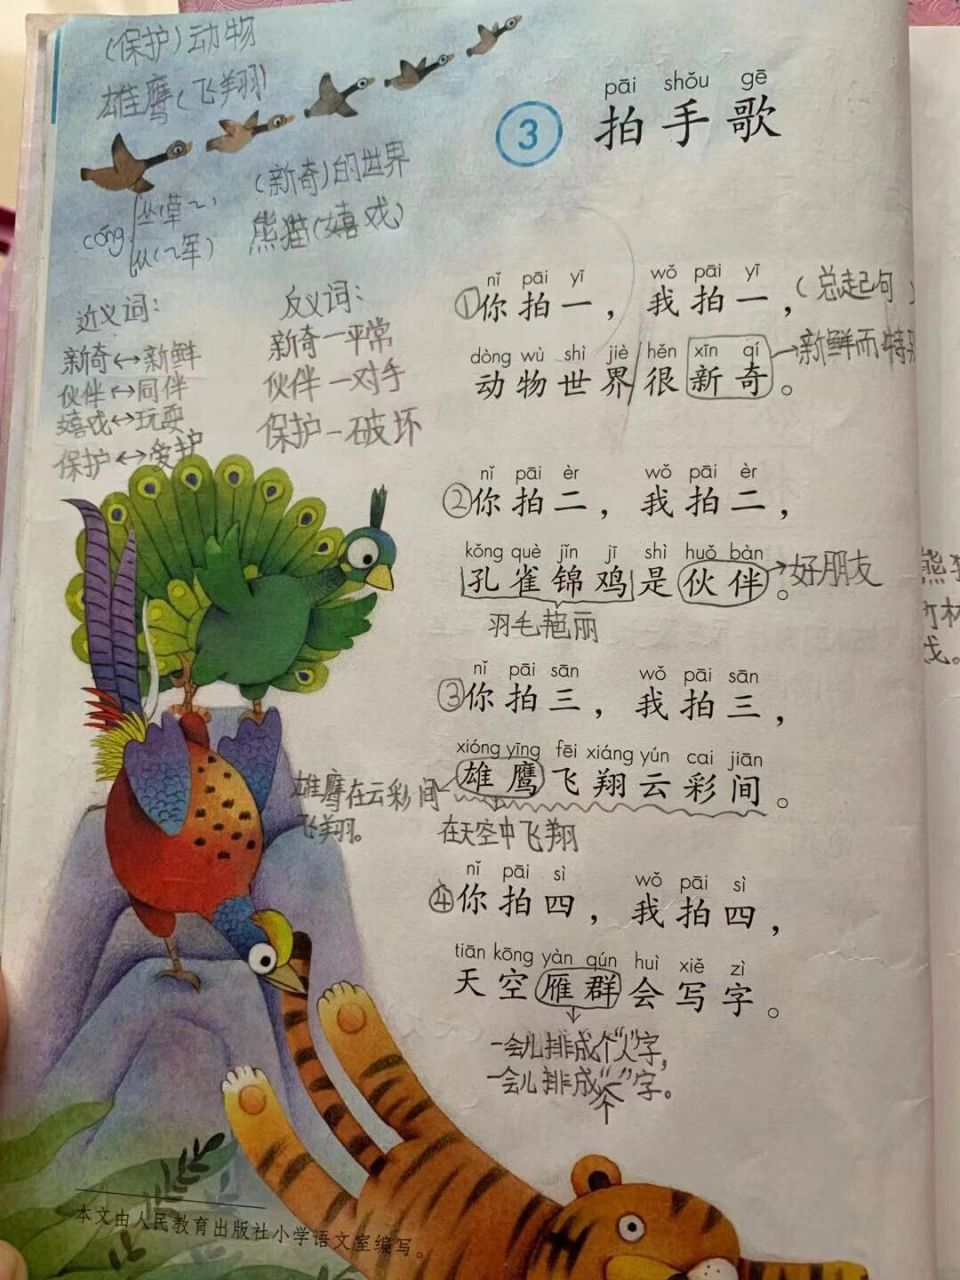 (保护)动物
雄鹰(飞翔)
(新奇)的世界
熊猫(嬉戏)
cóng
丛(草~)
从(~军)
近义词:
新奇↔新鲜
伙伴↔同伴
嬉戏↔玩耍
保护↔爱护
反义词:
新奇—平常
伙伴—对手
保护—破坏
pāi shǒu gē
3 拍手歌
nǐ pāi yī wǒ pāi yī
①你拍一，我拍一，(总起句)
dòng wù shì jiè hěn xīn qí
动物世界/很新奇。→新鲜而特别
nǐ pāi èr wǒ pāi èr
②你拍二，我拍二，
kǒng què jǐn jī shì huǒ bàn
孔雀锦鸡是伙伴。→好朋友
羽毛艳丽
nǐ pāi sān wǒ pāi sān
③你拍三，我拍三，
xióng yīng fēi xiáng yún cai jiān
雄鹰飞翔云彩间。
雄鹰在云彩间
飞翔。
在天空中飞翔
nǐ pāi sì wǒ pāi sì
④你拍四，我拍四，
tiān kōng yàn qún huì xiě zì
天空雁群会写字。
一会儿排成个“人”字，
一会儿排成个“一”字。
本文由人民教育出版社小学语文室编写。